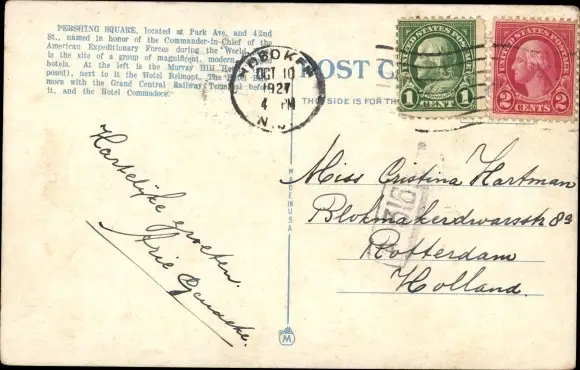 PERSHING SQUARE, located at Park Ave. and 42nd
St., named in honor of the Commander-in-Chief of the
American Expeditionary Forces during the World
is the site of a group of magnificent, modern
hotels. At the left is the Murray Hill
posed), next to it the Hotel Belmont. The
more with the Grand Central Railway Terminal before
it, and the Hotel Commodore.
HOBOKEN
OCT 10
1927
4 PM
N.J.
POST
THIS SIDE IS FOR TH
UNITED STATES POSTAGE
1 CENT 1
UNITED STATES POSTAGE
2 CENTS 2
MADE IN USA
Hartelijke groeten.
Arie
Miss Cristina Hartman
Blokmakerdwarsstr 8a
Rotterdam
Holland.
M